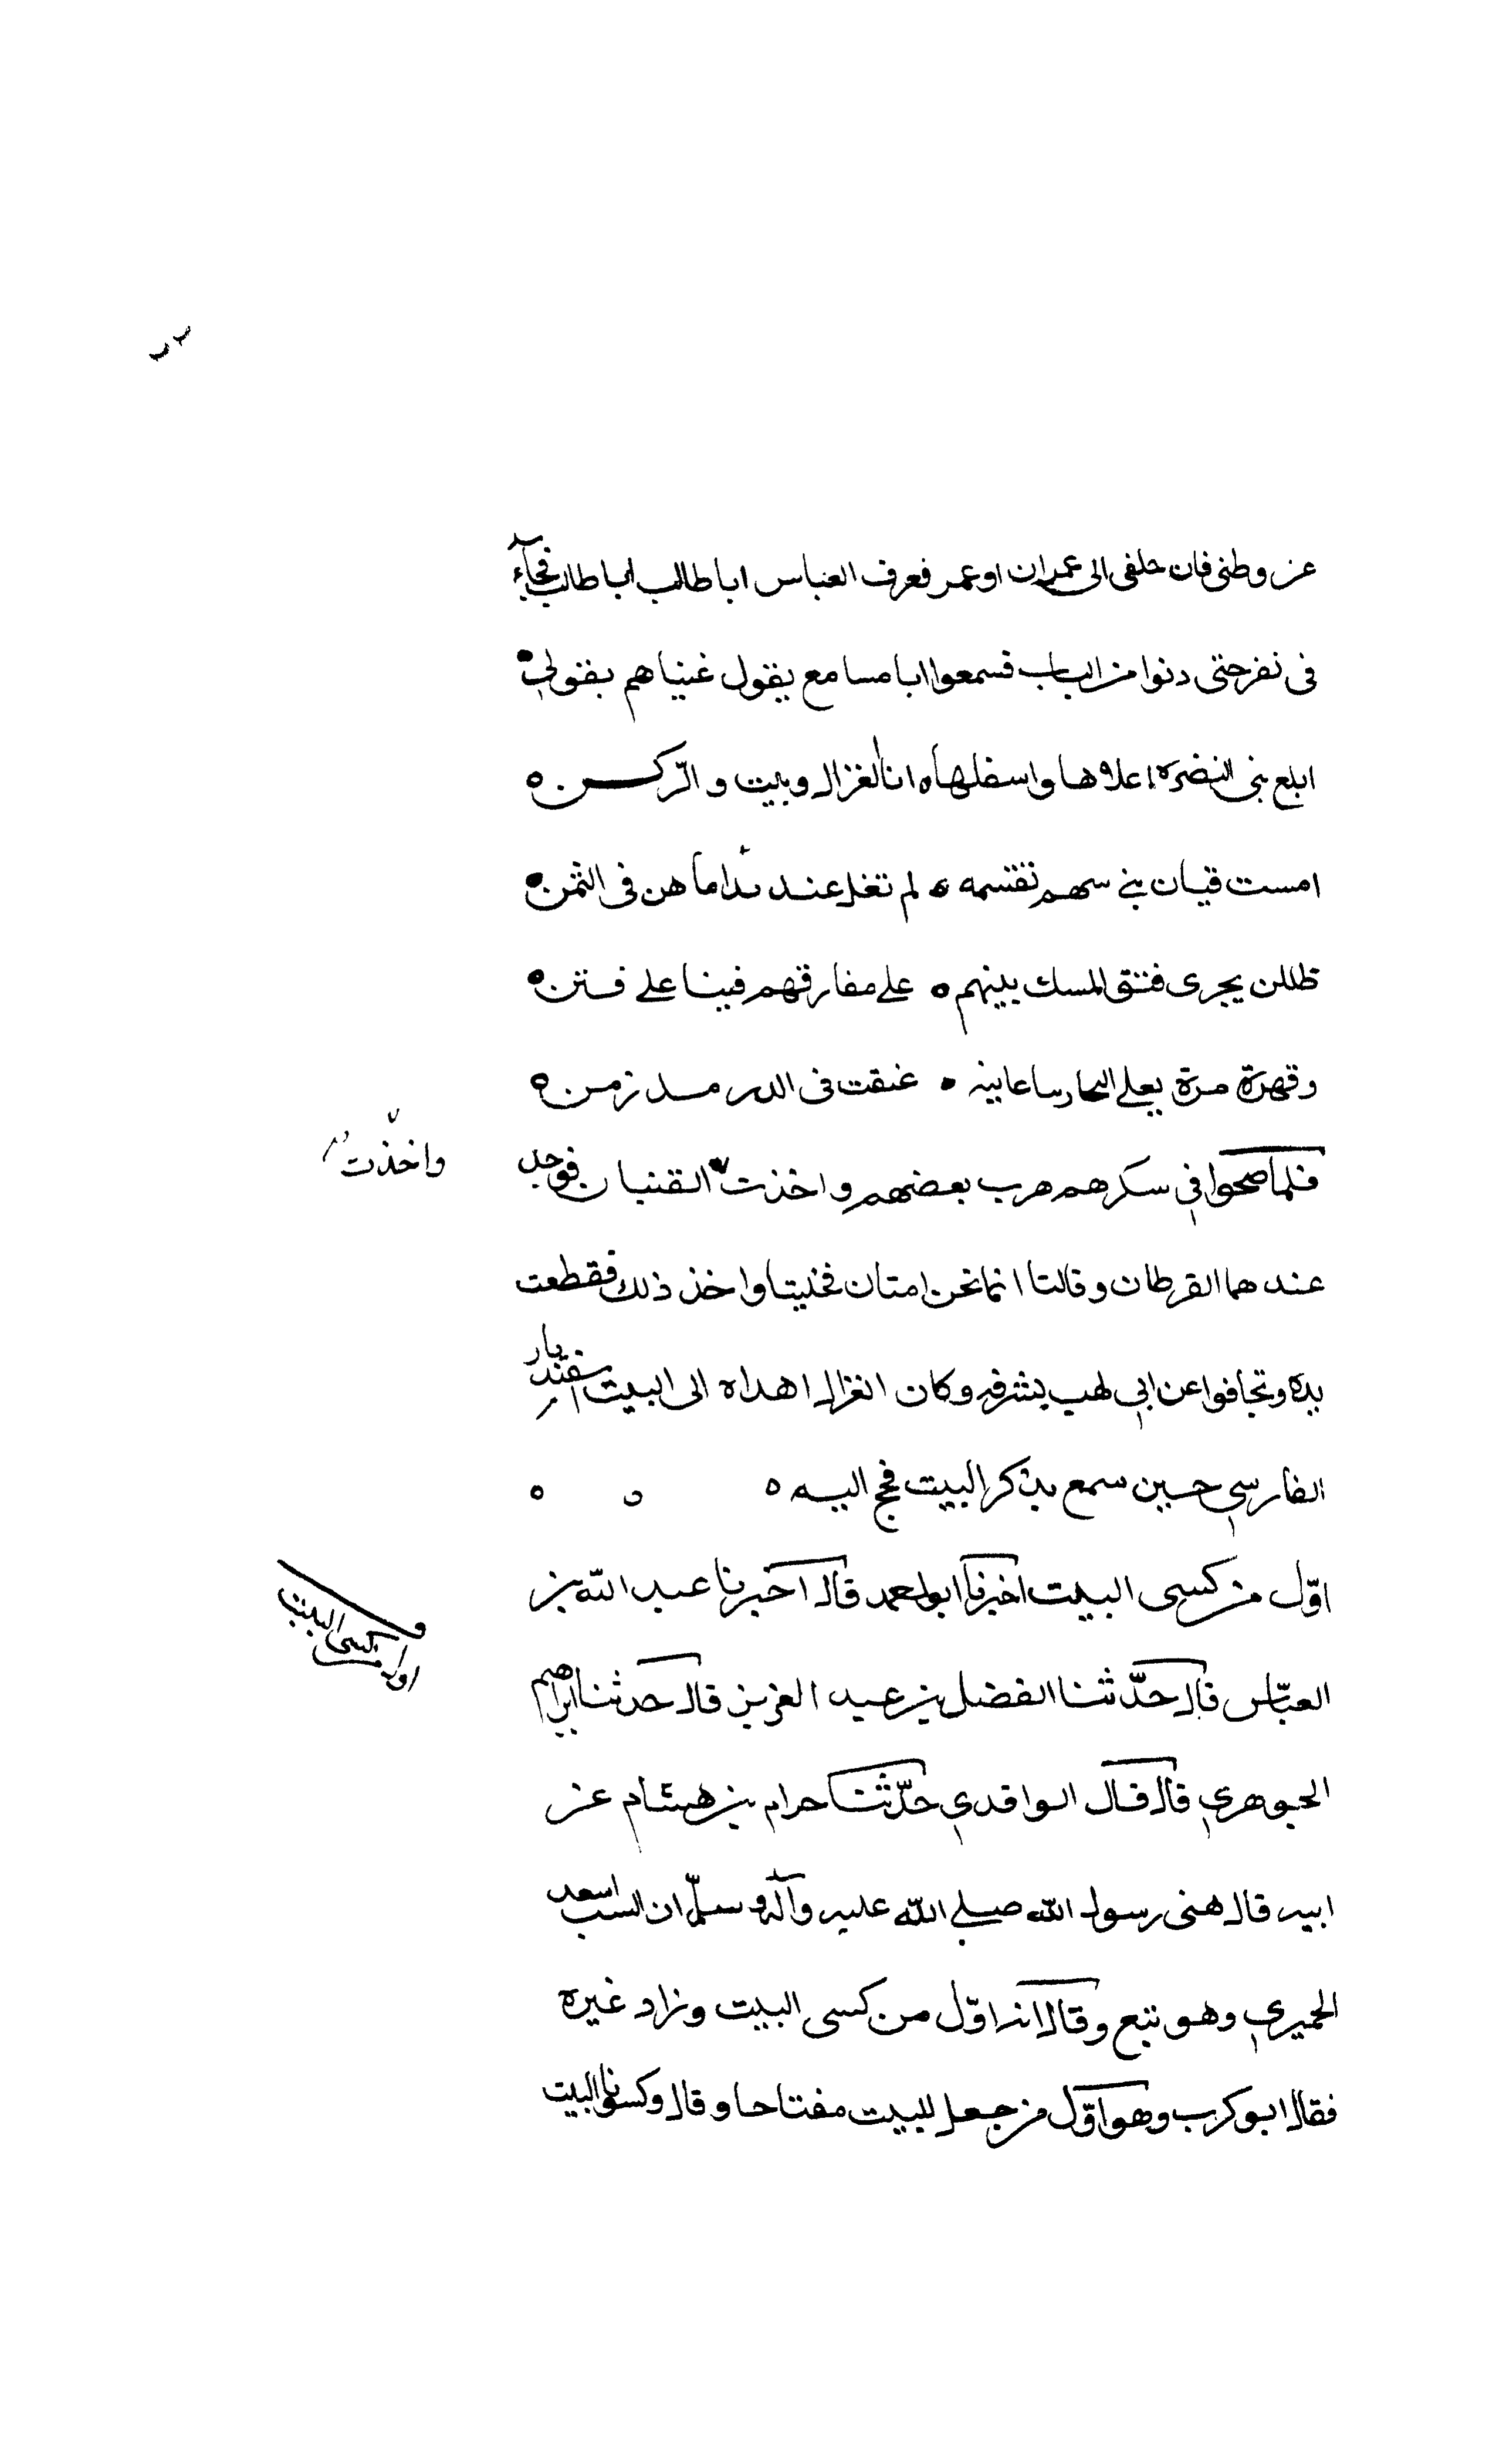 عن وطنى فان حلفى الى عمران او عمر فعرف العباس ابا طالب ابا طالب فجآء
فى نفر حتى دنوا من الباب فسمعوا ابا مسامع يقول غنياهم بقولى
ابلع بنى النضره اعلاها واسفلها ه ان الغزال وبيت و الرّكن ه
امست قيان بنى سهم تقتسمه ه لم تغل عند نداما هن فى الثمن ه
ظللن يجرى فتق المسك بينهم ه على مفارقهم فينا على فتن ه
وقهرة مرة يعلى عانيه ه عنقت فى الدر مد زمن ه
فلما صحوا فى سكرهم هرب بعضهم واخذت القنيان فوجد
واخذت
عندهما القرطان وقالتا انما نحن امتان فخليتا واخذ ذلك فقطعت
يده وتجافوا عن ابى لهب بشرفه وكان الغزال اهداه الى البيت اسفنديار
الفارسى حين سمع بذكر البيت فحج اليه ه ه ه
اوّل من كسى البيت اخبرنا ابو احمد قال اخبرنا عبد الله بن
اول من كسى البيت
العبّاس قال حدّثنا الفضل بن عبد العزيز قال حدثنا ابراهيم
الجوهري قال قال الواقدي حدّثنا حرام بن هشام عن
ابيه قال نهى رسول الله صلى الله عليه وآله وسلّم ان السب اسعد
الحميري وهو تبع وقال انه اوّل من كسى البيت وزاد غيره
فقال ابو كرب وهو اوّل من جعل للبيت مفتاحا وقال وكسونا البيت